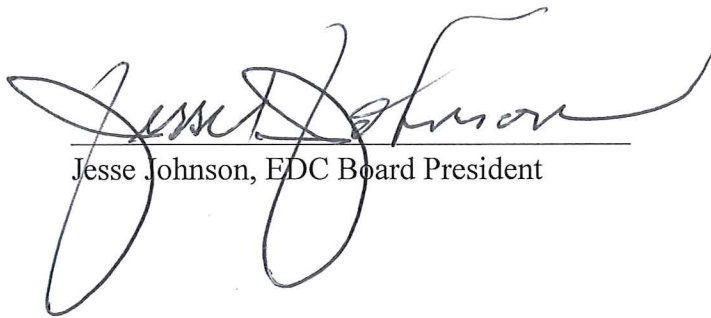 Jesse Johnson
Jesse Johnson, EDC Board President